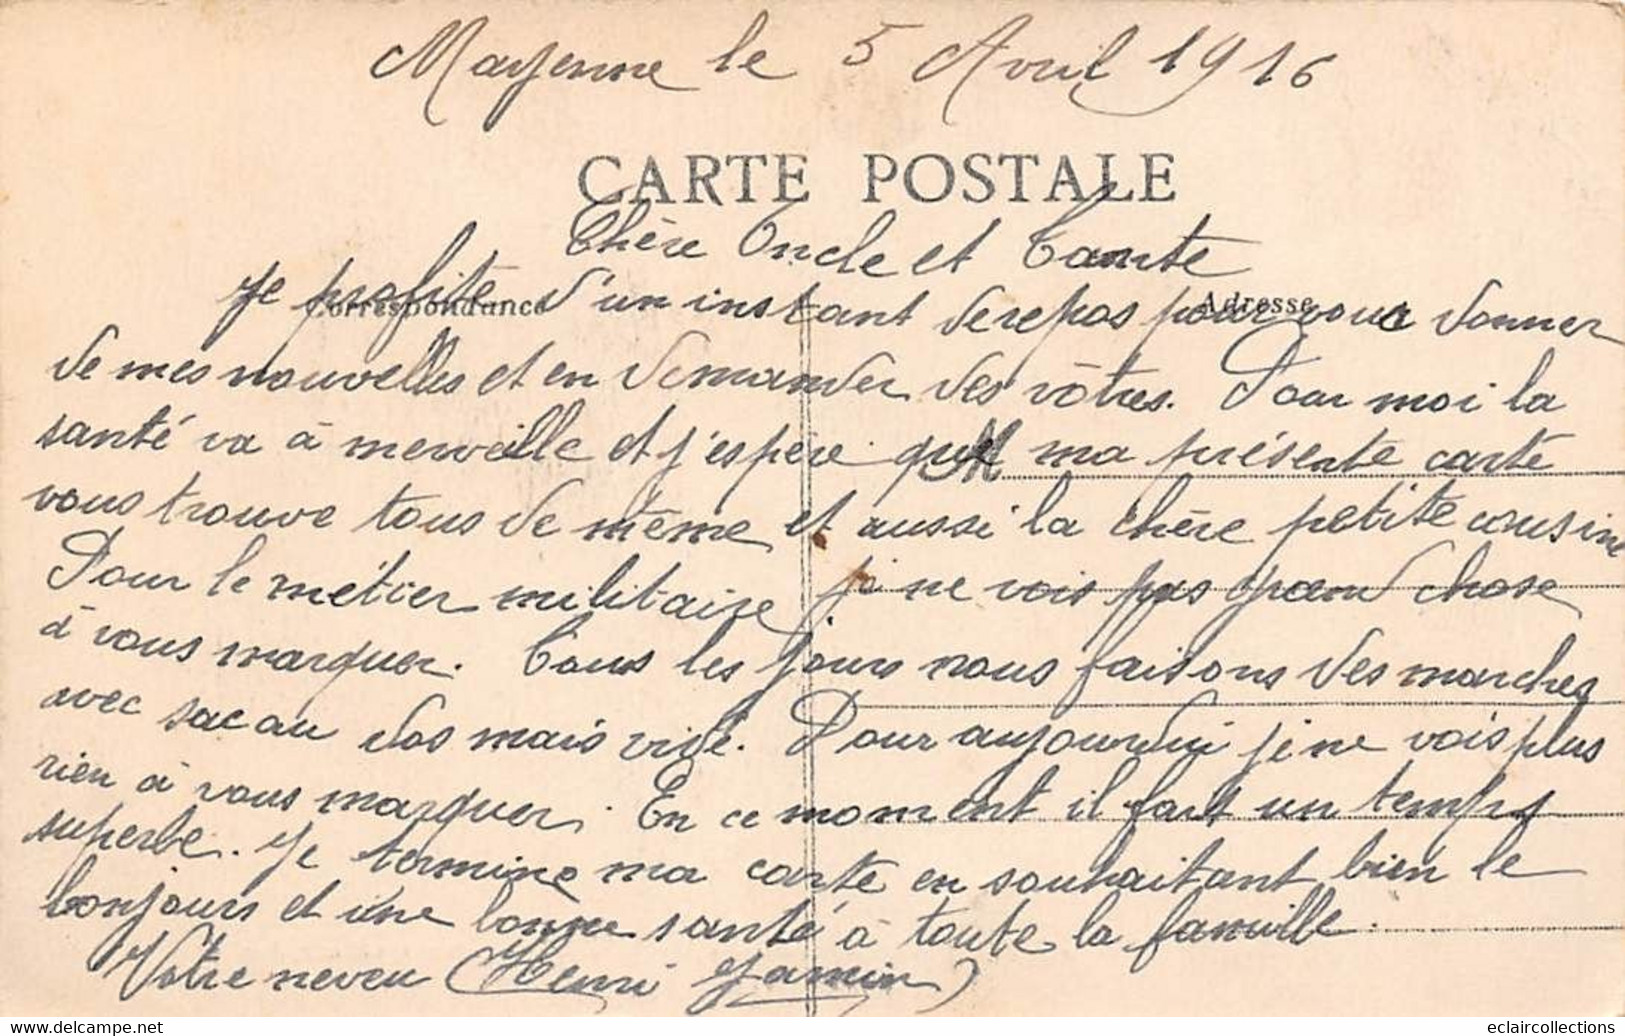 Mayenne le 5 Avril 1916
CARTE POSTALE
Chère Oncle et Tante
Correspondance
Adresse
Je profite d'un instant de repos pour vous donner
de mes nouvelles et en demander des vôtres. Pour moi la
santé va à merveille et j'espère que ma présente carte
vous trouve tous de même et aussi la chère petite cousine
Pour le métier militaire je ne vois pas grand chose
à vous marquer. Tous les jours nous faisons des marches
avec sac au dos mais vide. Pour aujourdui je ne vois plus
rien à vous marquer. En ce moment il fait un temps
superbe. Je termine ma carte en souhaitant bien le
bonjours et une bonne santé à toute la famille.
Votre neveu (Henri Jamin)
eclaircollections